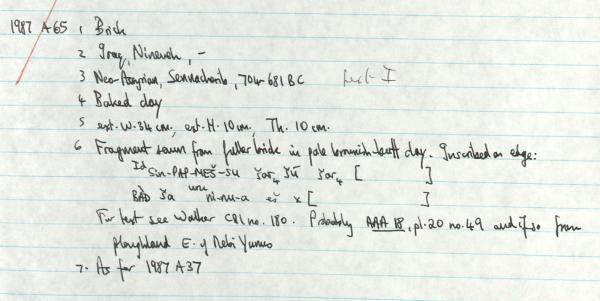 1987 A65 1 Brick
2 Iraq, Nineveh, -
3 Neo-Assyrian, Sennacherib, 704-681 BC text I
4 Baked clay
5 ext. W. 34 cm, ext. H. 10 cm, Th. 10 cm.
6 Fragment sawn from fuller brick in pale brownish-buff clay. Inscribed on edge:
Id Sin-PAP-MEŠ-SU šar₄ ŠÚ šar₄ [ ]
BÀD ša uru ni-nu-a eš x [ ]
For text see Walker CBI no. 180. Probably AAA 18, pl. 20 no. 49 and if so from
ploughland E. of Nebi Yunus
7. As for 1987 A37